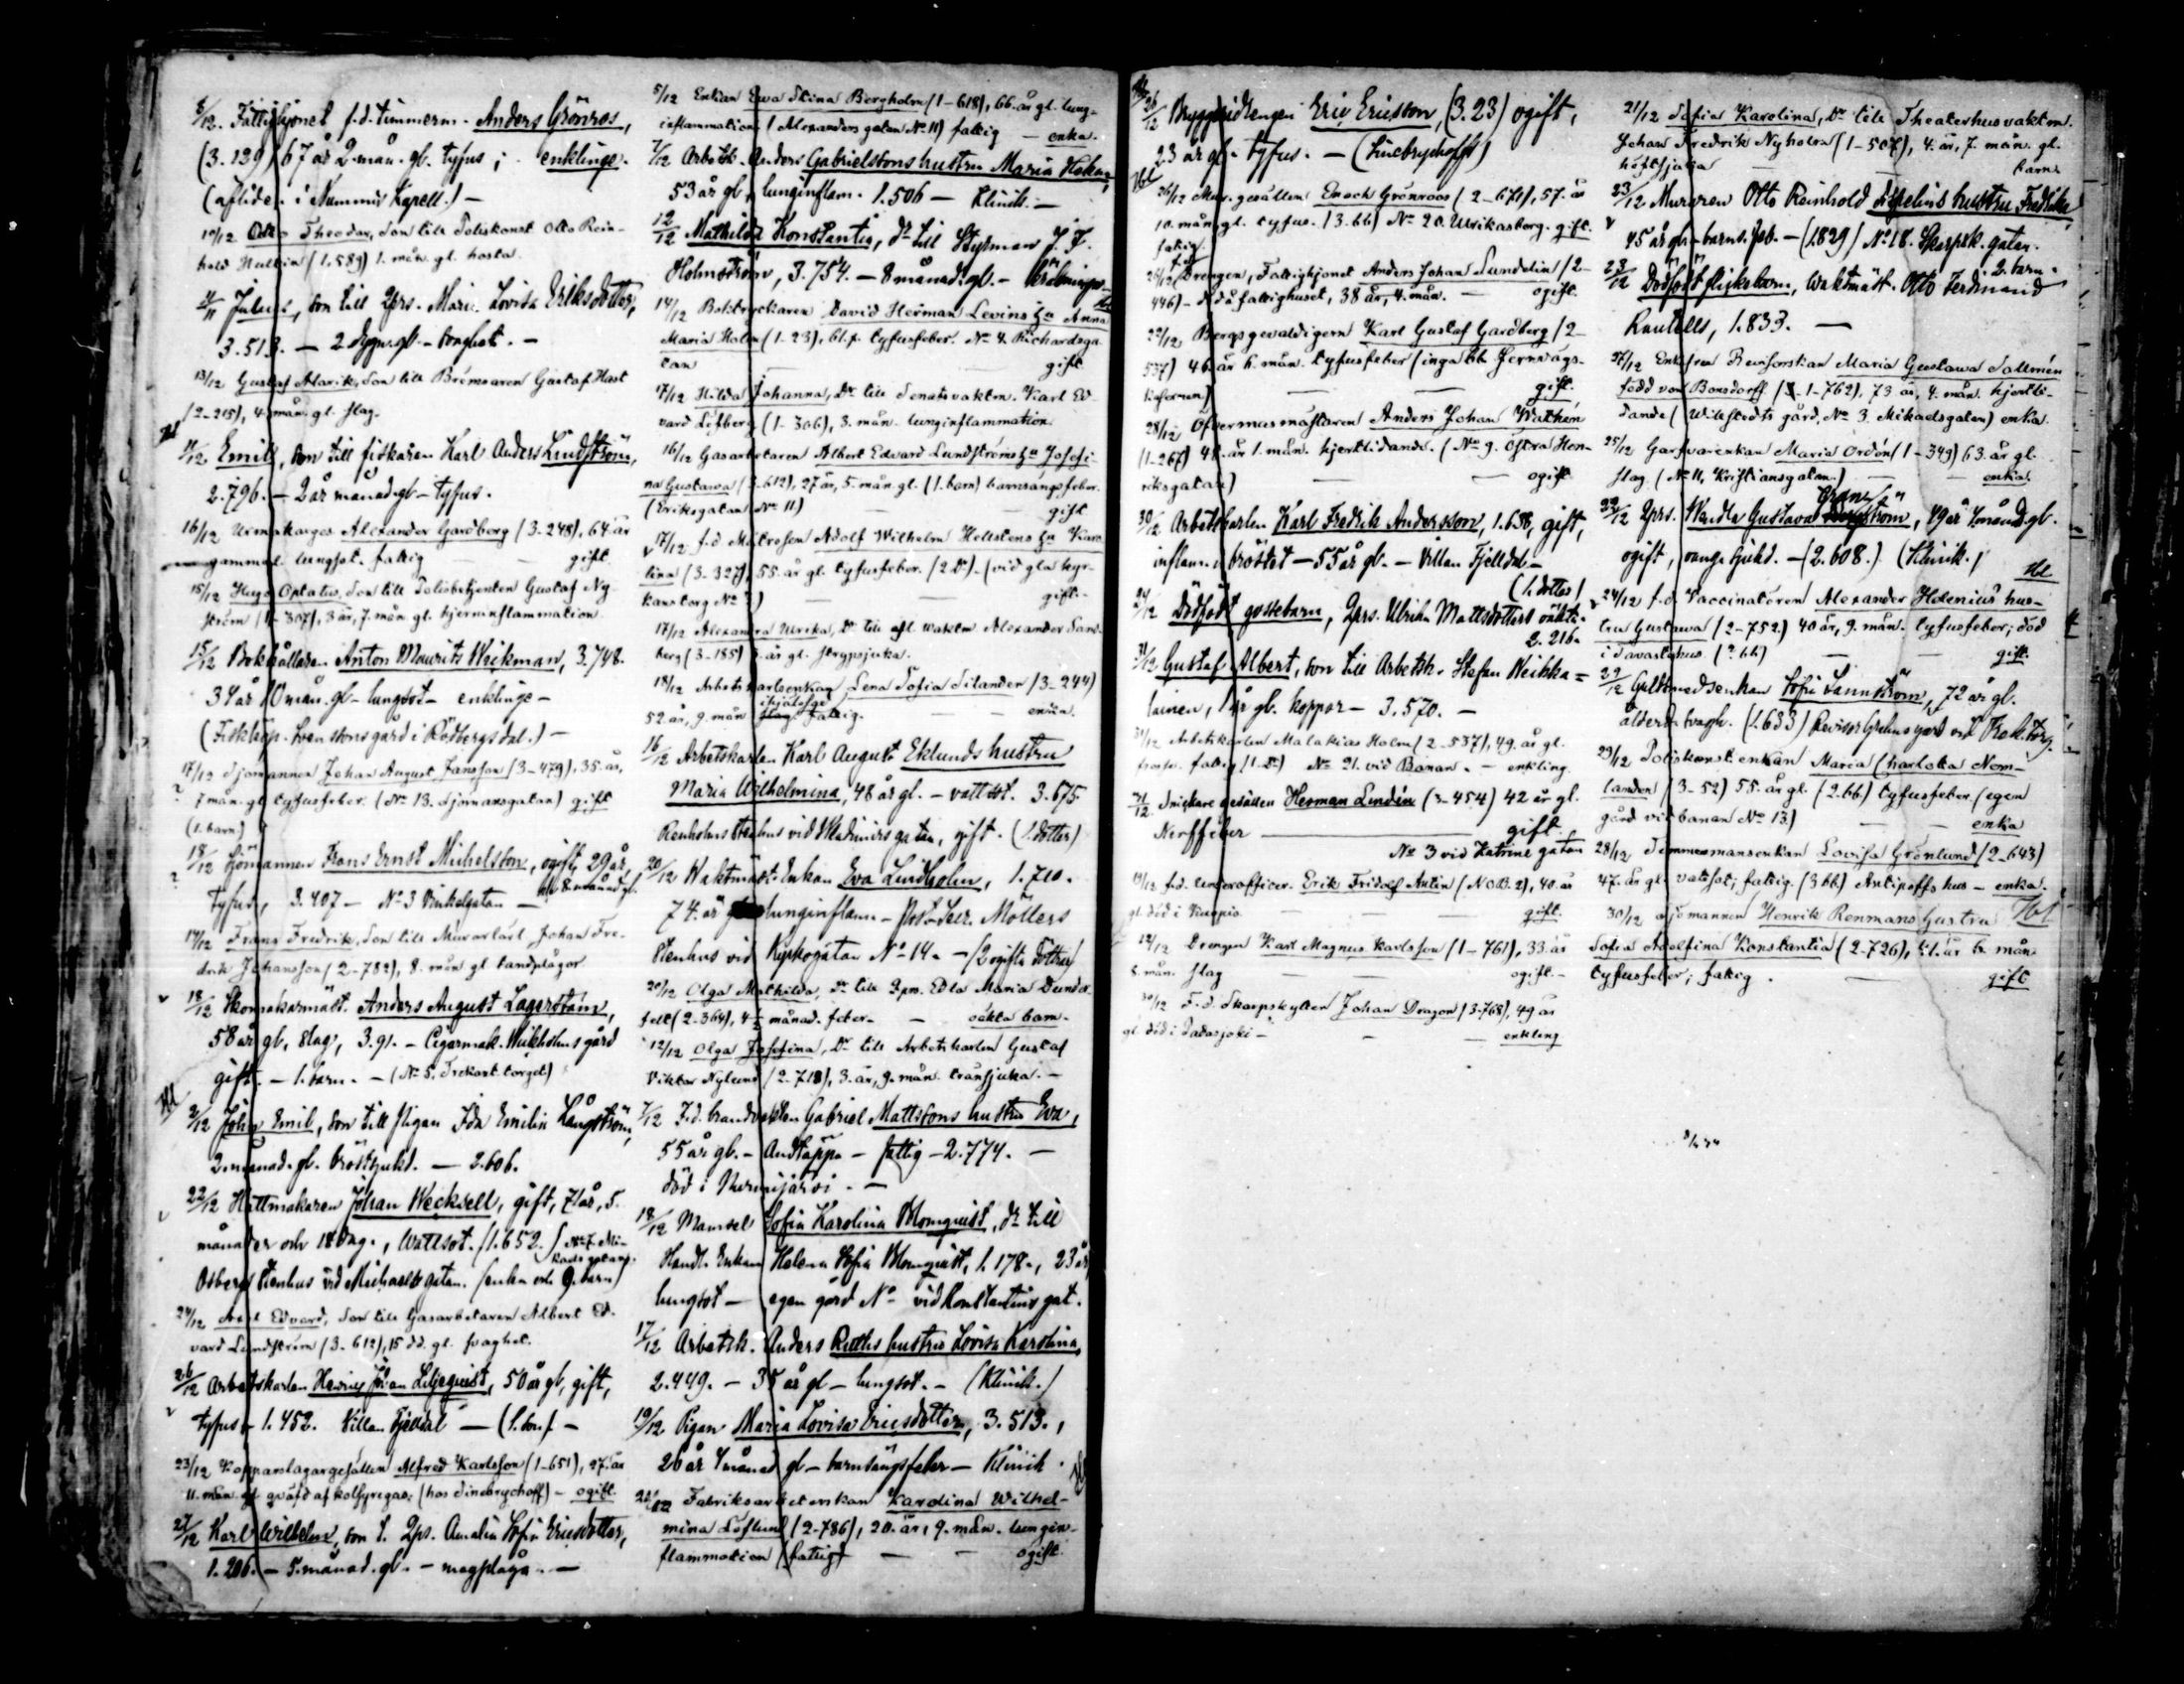 8/12. Fattighjonet f.d. timmerm. Anders Grönroos,
(3.129) 67 år 2 mån. gl. tyfus; enkling.
(afliden i Nummis Kapell.) —
10/12 Otto Theodor, Son till Poliskonst. Otto Rein-
hold Hultin (1.589) 1. mån. gl. hosta.
Julius, son till Qprs. Mari. Lovisa Eriksdotter,
3.513. — 2 dygn. gl. —
13/12 Gustaf Alarik, Son till Bromsaren Gustaf Häst
(2-215), 4. mån. gl. slag.
11/12 Emil, son till fiskaren Karl Anders Lindström,
2.796. — 2 år månad. gl. — tyfus.
16/12 Urmakarges. Alexander Gardberg (3-248), 64. år
gammal. lungsot. fattig — gift
15/12 Hugo Optatus, Son till Polisbetjenten Gustaf Ny-
ström (1-307), 3 år, 7. mån. gl. hjerninflammation.
15/12 Bokhållaren Anton Mauritz Weikman, 3.748.
34 år 10 mån. gl. — lungsot — enkling —
(Fiskköp. Svenssons gård i Rödbergsdal.) —
17/12 Sjömannen Johan August Jansson (3-479), 35. år,
7 mån. gl. tyfusfeber. (No 13. Sjömansgatan) gift
(1. barn)
18/12 Sjömannen Frans Ernst Michelsson, ogift, 29 år,
8 månad gl.
Tyfus, 3.407 — No 3 Vinkelgatan —
14/12 Frans Fredrik, Son till Murarlärl. Johan Fre-
drik Johansson (2-782), 8. mån gl. tandplågor
18/12 Skomakarmäst. Anders August Lagerstam,
58 år gl, slag, 3.91. — Cigarrmak. Wikholms gård
gift. — 1. barn. — (No 5. Trekant. torget)
2/12 John Emil, son till pigan Ida Emilia Långström,
2. månad. gl. bröstsjukd. — 2.606.
22/12 Hattmakaren Johan Wecksell, gift, 71 år, 5.
månader och 18 dag., Wattsot. (1.652.) No 7. Mi-
kaels gatan.
Osberg Stenhus vid Michaelsgatan. (enka och 9. barn)
24/12 Axel Edvard, Son till Gasarbetaren Albert Ed-
vard Lundström (3-612), 15 dd. gl. svaghet.
26/12 Arbetskarlen Henrik Johan Liljequist, 50 år gl, gift,
tyfus — 1.452. Villan Fjelldal — (1. son.) —
23/12 Kopparslagargesällen Alfred Karlsson (1-651), 27. år
11. mån. gl. qväfd af kolsyregas; (hos Sinebrychoff) — ogift
27/12 Karl Wilhelm, son t. Qprs. Amalia Sofia Ericsdotter,
1.206. — 5. månad. gl. — magplåga. —
5/12 Enkan Eva Stina Bergholm (1-618), 66. år gl. lung-
inflammation (Alexanders gatan No 11) fattig — enka.
7/12 Arbetsk. Anders Gabrielssons hustru Maria
53 år gl, lunginflam. 1.506 — Klinik. —
12/12 Mathilda Konstantia, Dr till Styrman J. F.
Holmström, 3.754. — 8 månad. gl. —
14/12 Boktryckaren David Herman Levins hu Anna
Maria Holm (1-23), 61. år tyfusfeber. No 4. Richardsga-
tan — gift
17/12 Hilda Johanna, Dr till Senatsvaktm. Karl Ed-
vard Löfberg (1-306), 3. mån. lunginflammation.
16/12 Gasarbetaren Albert Edvard Lundströms hu Josefi-
na Gustava (3-612), 27 år, 5. mån. gl. (1. barn) barnsängsfeber.
(Eriksgatan No 11.) — gift
17/12 f.d Matrosen Adolf Wilhelm Hellstens hu Karo-
lina (3-327), 55. år gl. tyfusfeber. (2 Dr). (vid gla kyr-
kans torg No) — gift.
17/12 Alexandra Ulrika, Dr till afl. waktm Alexander Sand-
berg (3-185) år gl. strypsjuka.
18/12 Arbetskarlsenkan Lena Sofia Silander (3-244)
52 år, 9. mån fattig. — enka.
16/12 Arbetskarlen Karl August Eklunds hustru
Maria Wilhelmina, 48 år gl. — vattsot. 3.675.
Renholms Stenhus vid Wladimirsgatan, gift. (1. dotter)
20/12 Waktmäst. Enkan Eva Lindholm, 1.710.
74. år lunginflam — Post-Secr. Möllers
Stenhus vid Kyrkogatan No 14. — (2 gifta döttrar)
20/12 Olga Mathilda, Dr till Qpm. Edla Maria Dunder-
felt (2-364), 4 1/2 månad. feber. — oäkta barn.
12/12 Olga Josefina, Dr till Arbetskarlen Gustaf
Viktor Nylund (2-718), 3. år, 9. mån. tränsjuka. —
7/12 F.d. brandvakten Gabriel Mattssons hustru Eva,
55 år gl. — Andtäppa — fattig — 2.774. —
död i Nurmijärvi. —
18/12 Mamsell Sofia Karolina Blomquist, dr till
Handl. Enkan Helena Sofia Blomquist, 1.178., 23 år,
lungsot — egen gård No vid Konstantins gat.
17/12 Arbetsk. Anders Ruths hustru Lovisa Karolina,
2.449. — 35 år gl — lungsot. — (Klinik.)
19/12 Pigan Maria Lovisa Ericsdotter, 3.513.,
26 år 4 månad gl — barnsängsfeber — Klinik.
Fabriksarbeterskan Karolina Wilhel-
mina Löflund (2-786), 20. år, 9. mån. lungin-
flammation (fattig) — ogift.
26/12 Bryggeridrengen Eric Ericsson, (3.23) ogift,
23 år gl. — tyfus. — (Sinebrychoff)
26/12 Mur. gesällen Enoch Grönroos (2-671), 57. år
10. mån. gl. tyfus. (3. bb) No 20. Ulrikasborg. gift.
fattig.
Drengen, Fattighjonet Anders Johan Sundelin (2-
446) — på fattighuset, 38 år, 4. mån. — ogift.
22/12 Bergsgevaldigern Karl Gustaf Gardberg (2-
537) 46. år 6. mån. tyfusfeber (inga bb Jernvägs-
— gift.
28/12 Öfvermusmästaren Anders Johan Wathén
(1-267) 48. år 1. mån. hjertlidande. (No 9. Östra Hen-
riksgatan) — ogift
30/12 Arbetskarlen Karl Fredrik Andersson, 1.656, gift,
inflam. i bröstet — 55 år gl. — Villan Fjelldal —
(1. dotter)
24/12 Dödfödt gossebarn, Qprs. Ulrika Mattsdotters oäkta.
2.216.
31/12 Gustaf Albert, son till Arbetsk. Stefan Weikka=
lainen, 1 år gl. koppor — 3.570. —
31/12 Arbetskarlen Malakias Holm (2-537), 49. år gl.
fattig (1. Dr) No 21. vid Banan. — enkling.
31/12 Snickare gesällen Herman Lindén (3-454) 42 år gl.
Nerffeber — gift.
No 3 vid Katrine gatan
19/12 f.d. Underofficer. Erik Fridolf Antin (NOB. 2), 40. år
gl. död i Kuopio. — gift.
12/12 Drengen Karl Magnus Karlsson (1-761), 33. år
8. mån. slag — ogift. —
30/12 F.d. Skarpskytten Johan Dragon (3-768), 49 år
gl. död i Padasjoki — enkling
21/12 Sofia Karolina, Dr till Theaterhusvaktm.
Johan Fredrik Nyholm (1-507), 4. år, 7. mån. gl.
höftsjuka — barn.
23/12 Muraren Otto Reinhold hustru Fredrika
45 år gl. — barns. feb. — (1.829) No 18. Skarpsk. gatan.
2. barn.
23/12 Dödfödt flickebarn, Waktmäst. Otto Ferdinand
Rautells, 1.833. —
27/12 Enkefru Maria Gustava Sallmén
född von Bonsdorff (1-762), 73 år, 4. mån. hjertli-
dande (Willstedts gård, No 3. Mikaelsgatan) enka.
25/12 Garfvarenkan Maria Ordén (1-349) 63. år gl.
slag. (No 11, Kristiansgatan.) — enka.
22/12 Qprs. Wendla Gustava, 49 år 4 månad. gl.
ogift, — (2.608.) (Klinik.)
24/12 f.d. Vaccinatören Alexander Helenius' hus-
tru Gustava (2-752) 40 år, 9. mån. tyfusfeber; död
i Tavastehus. — gift.
22/12 Guldsmedsenkan Sofie Lannström, 72 år gl.
ålderd. svagh. (1.633)
29/12 Poliskonst. enkan Maria Charlotta Nom-
landen (3-52) 55. år gl. (2. bb) tyfusfeber. (egen
gård vid banan No 13) — enka
28/12 Timmermansenkan Lovisa Grönlund (2-643)
47. år gl. vattsot, fattig. (3 bb) Antipoffs hus — enka.
30/12 Sjömannen Henrik Renmans hustru
Sofia Adolfina Konstantia (2-726), 41. år 6. mån
tyfusfeber; fattig. — gift